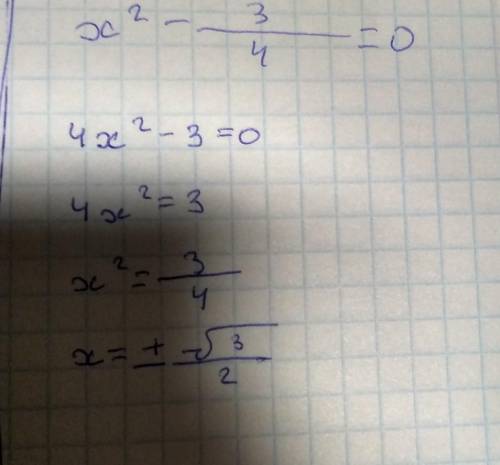 x² - 3/4 = 0
4x² - 3 = 0
4x² = 3
x² = 3/4
x = ± -√3/2